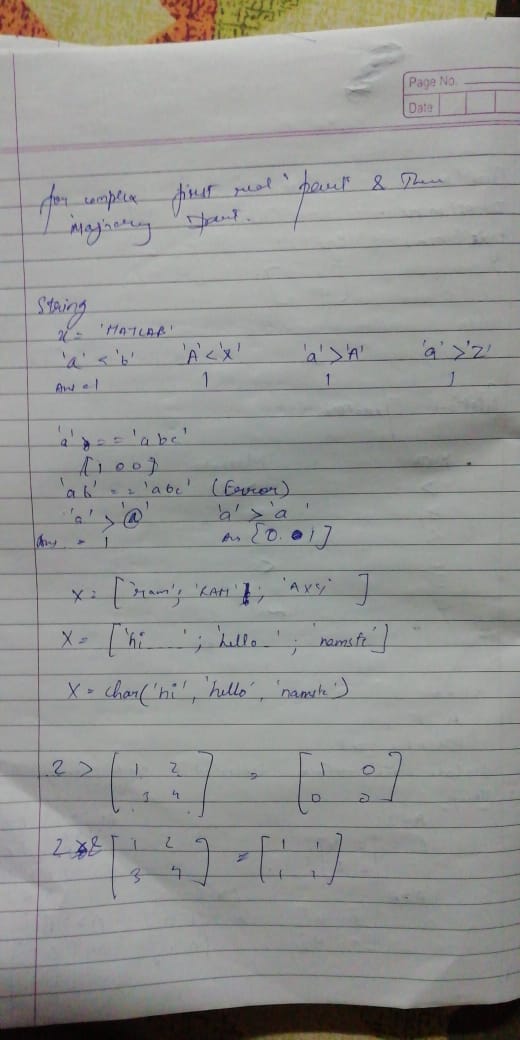 Page No.
Date
for complex first real part & then
imaginary part.
String
x = 'MATLAB'
'a' < 'b' 'A' < 'X' 'a' > 'A' 'a' > 'Z'
Ans = 1 1 1 1
'a' == 'abc'
[1 0 0]
'ab' == 'abc' (Error)
'a' > '@' 'a' > 'a '
Ans = 1 An [0 1]
X = ['ram'; 'RAM'; ]
X = ['hi____'; 'hello_'; 'namste']
X = char('hi', 'hello', 'namste')
2 > [ 1 2 = [ 1 0
3 4 ] 0 0 ]
2 & [ 1 2 = [ 1 1
3 4 ] 1 1 ]